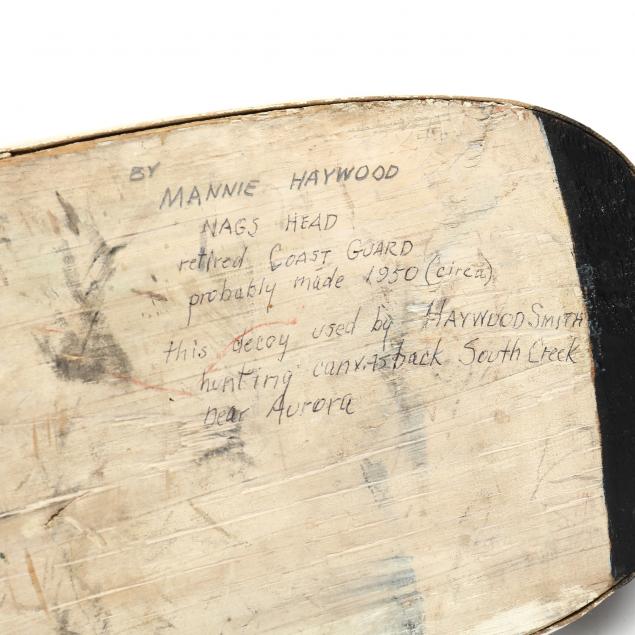 BY
MANNIE HAYWOOD
NAGS HEAD
retired COAST GUARD
probably made 1950 (circa)
this decoy used by HAYWOOD SMITH
hunting canvasback South Creek
near Aurora